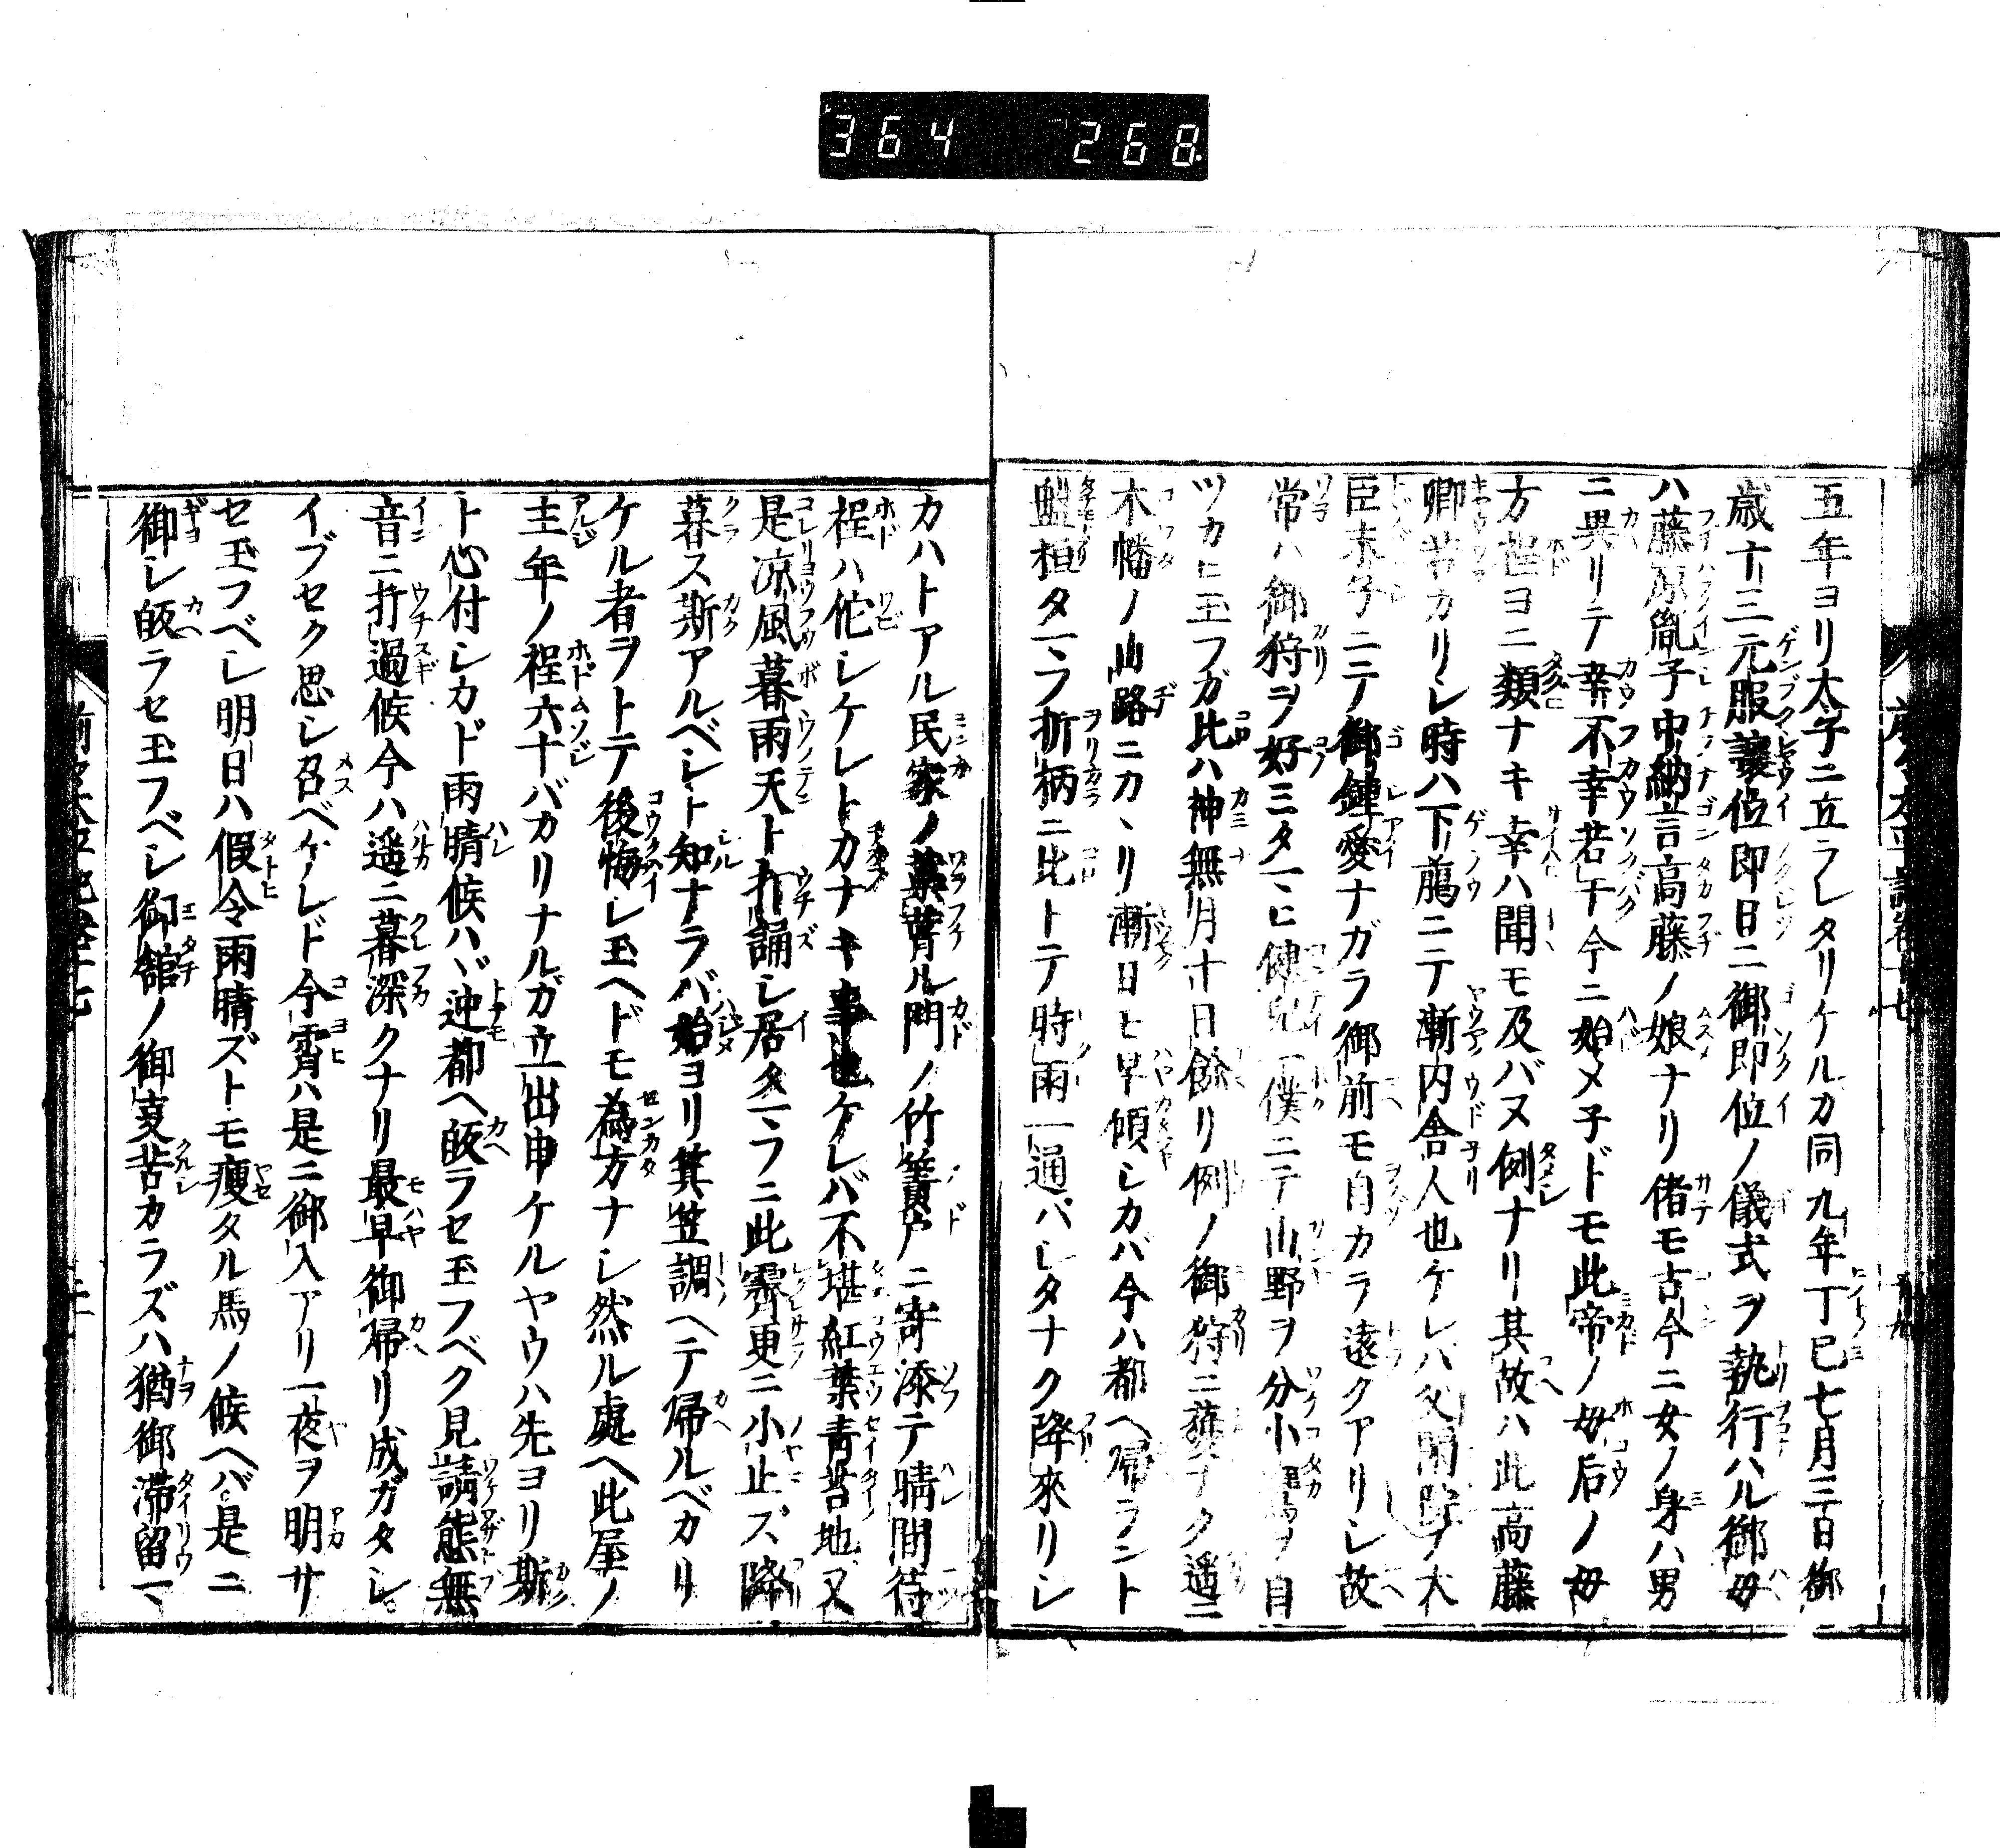 364 268
五年ヨリ太子ニ立ラレタリケルカ同九年丁巳七月三日御
歳十三元服讓位即日ニ御即位ノ儀式ヲ執行ハル御母
ハ藤原胤子中納言高藤ノ娘ナリ偖モ古今ニ女ノ身ハ男
ニ異リテ幸不幸若干今ニ始メ子ドモ此帝ノ母后ノ母
方程ヨニ類ナキ幸ハ聞モ及バヌ例ナリ其故ハ此高藤
卿若カリシ時ハ下﨟ニテ漸内舎人也ケレバ父閑院ノ大
臣末子ニテ御鍾愛ナガラ御前モ自カラ遠クアリシ故
常ハ御狩ヲ好ミタマヒ健児一僕ニテ山野ヲ分小鷹ヲ自
ツカヒ玉フガ比ハ神無月十日餘リ例ノ御狩ニ獲ナク遥ニ
木幡ノ山路ニカヽリ漸日ヒ早傾シカバ今ハ都ヘ帰ラント
盤桓タマフ折柄ニ比トテ時雨一通パレタナク降來リシ
カハトアル民家ノ藁葺ル門ノ竹簀戸ニ寄添テ晴間待
程ハ佗シケレトカナキ事也ケレバ不堪紅葉青苔地又
是凉風暮雨天ト打誦シ居タマフニ此霽更ニ小止ズ降
暮ス斯アルベシト知ナラバ始ヨリ箕笠調ヘテ帰ルベカリ
ケル者ヲトテ後悔シ玉ヘドモ為方ナシ然ル處ヘ此屋ノ
主年ノ程六十バカリナルガ立出申ケルヤウハ先ヨリ斯
ト心付シカド雨晴候ハヾ迚都ヘ皈ラセ玉フベク見請態無
音ニ打過候今ハ遥ニ暮深クナリ最早御帰リ成ガタシ
イブセク思シ召ベケレド今霄ハ是ニ御入アリ一夜ヲ明サ
セ玉フベシ明日ハ假令雨晴ズトモ痩タル馬ノ候ヘバ是ニ
御シ皈ラセ玉フベシ御舘ノ御叓苦カラズハ猶御滞留マ